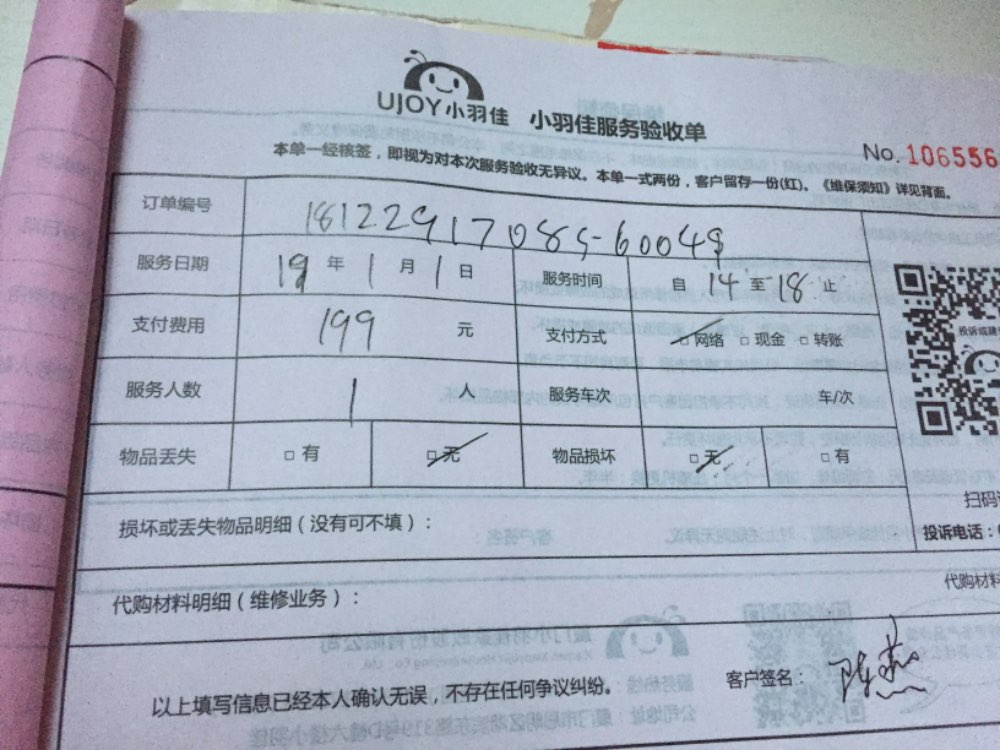 UJOY小羽佳 小羽佳服务验收单
No. 106556
本单一经核签，即视为对本次服务验收无异议。本单一式两份，客户留存一份(红)。《维保须知》详见背面。
订单编号 18122917085-60049
服务日期 19 年 1 月 1 日 服务时间 自 14 至 18 止
支付费用 199 元 支付方式 □网络 □现金 □转账
投诉或建
服务人数 1 人 服务车次 车/次
物品丢失 □有 □无 物品损坏 □无 □有
扫码
损坏或丢失物品明细（没有可不填）：
投诉电话：
代购材料明细（维修业务）：
代购材料
以上填写信息已经本人确认无误，不存在任何争议纠纷。 客户签名：